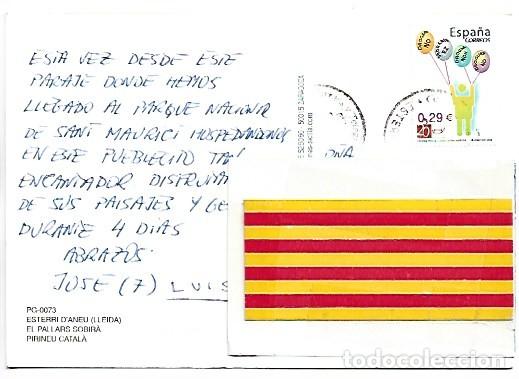 ESTA VEZ DESDE ESTE
PARAJE DONDE HEMOS
LLEGADO AL PARQUE NACIONAL
DE SANT MAURICI HOSPEDANDONOS
EN ESTE PUEBLECITO TAN
ENCANTADOR DISFRUTA
DE SUS PAISAJES Y GE
DURANTE 4 DIAS
ABRAZOS
JOSE (7) LUIS
PG-0073
ESTERRI D'ANEU (LLEIDA)
EL PALLARS SOBIRÀ
PIRINEU CATALÀ
España
CORREOS
NO
NO
NO
0,29 €
20
50015 ZARAGOZA
OÑA
todocoleccion.net